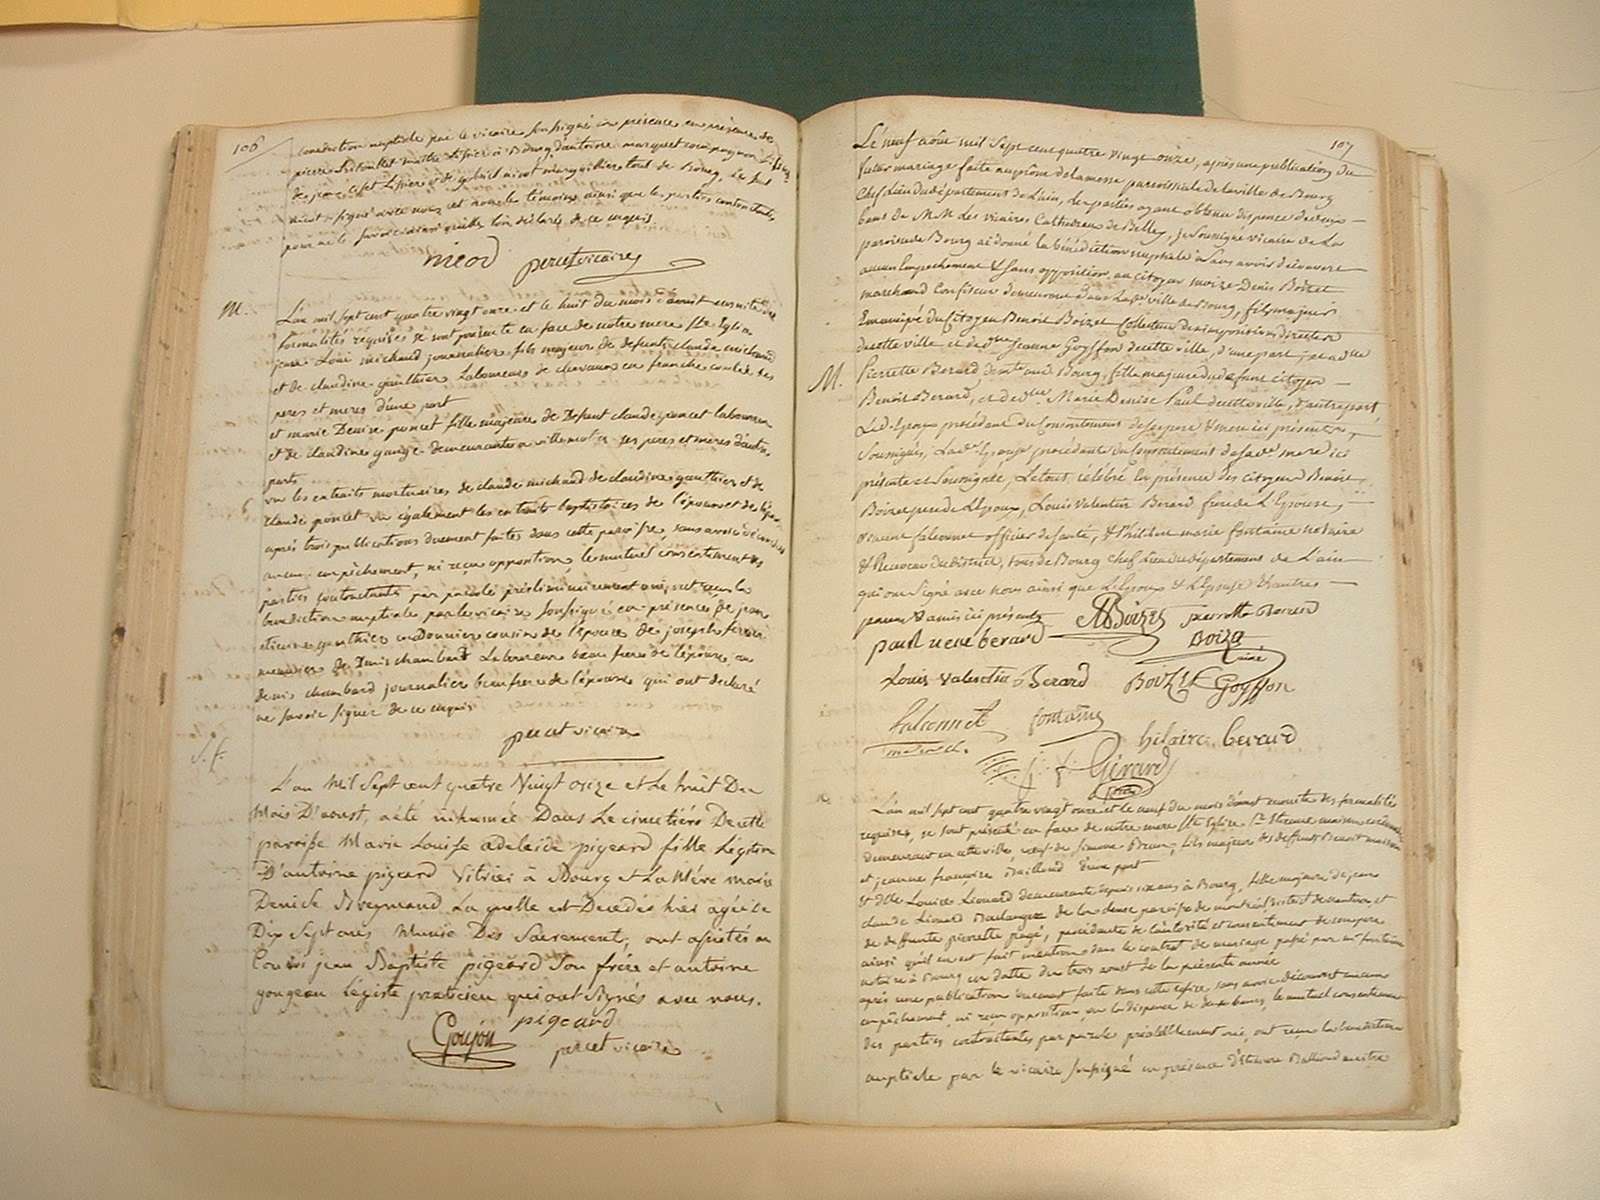 106
benediction nuptiale par le vicaire soussigné en presence en présence de
pierre maitre à Bourg d'antoine marquet compagnon
de jean et de gabriel nicod marguillier tout de Bourg. Le sus
nicod signé avec nous et non les témoins ainsi que les parties contractantes
pour ne le savoir ainsi quelles l'on déclarés de ce enquis
nicod percet vicaire
M.
L'an mil sept cent quatre vingt onze et le huit du mois d'aoust ensuite des
formalités requises se sont présenté en face de notre mere Ste Eglise
jean Loui michaud journalier fils majeur de defunts claude michaud
et de claudine gauthier Laboureurs de en franche comté ses
peres et meres d'une part
et marie Denise poncet fille majeure de Defunt claude poncet laboureur
et de claudine gauge demeurante a villemotier ses peres et mères d'autre
parts
vu les extraits mortuaires de claude michaud de claudine gauthier et de
claude poncet vu également les extraits baptistaires de l'époux et de l'épouse
après trois publications duement faites dans cette paroisse, sans avoir découvert
aucun empêchement, ni reçu opposition, le mutuel consentement des
parties contractants par parole préliminairement ouie, ont reçu la
benediction nuptiale par le vicaire soussigné en présences de jean
etienne gauthier cordonnier cousin de l'épouse de joseph
meunier de Denis chambard Laboureur beau frere de l'épouse, de
denis chambard journalier beau frere de l'épouse qui ont declaré
ne savoir signer de ce enquis
percet vicaire
S. f.
L'an Mil Sept cent quatre Vingt onze et Le huit Du
Mois D'aoust, a été inhumée Dans Le cimetière De cette
paroisse Marie Louise adelaide pigeard fille Légitime
D'antoine pigeard Vitrier à Bourg et La Mère marie
Denise Breymand La quelle est Decedés hier agée de
Dix Sept ans Munie Des Sacrement, ont assistés au
Convoi jean Baptiste pigeard Son frère et antoine
goujon légiste praticien qui ont Signés avec nous.
Goujon pigeard
percet vicaire
107
Le neuf août mil Sept cent quatre vingt onze, après une publication du
futur mariage faite au prône de la messe paroissiale de la ville de Bourg
Chef Lieu du département de L'ain, les parties ayant obtenu dispense de deux
bans de M.M. les vicaires Cathedraux de Belley, je Soussigné vicaire de La
paroisse de Bourg ai donné la bénédiction nuptiale Sans avoir découvert
aucun Empechement & Sans opposition, au citoyen moïze Denis Boizet
marchand Confiseur demeurant dans La dte ville de Bourg, fils majeur
Emancipé du Citoyen Benoit Boizet Collecteur des impositions directes
de cette ville et de dme Jeanne Goyffon de cette ville, d'une part; et a dlle
M.
Pierrette Berard demte aud. Bourg, fille majeure du défunt citoyen
Benoit Berard, et de dme Marie Denise Paul de cette ville, d'autre part
Le d. Epoux procédant du Consentement de ses pere & mere ici présents,
Soussignés, La de Epouse procédante du Consentement de sa de mere ici
présente et Soussignée, Le tout, célébré En présence des citoyens Benoit
Boizet pere de L'Epoux, Louis Valentin Berard frere de L'Epouse,
vincent falconnet officier de santé, & Philibert marie fontaine notaire
& Receveur du district, tous de Bourg Chef Lieu du département de L'ain
qui ont Signé avec nous ainsi que L'Epoux & L'Epouse & autres
parens & amis ici présents
MDBoizet pierrette Berard
paul veuve berard Boizet
ainé
Louis Valentin Berard Boizet Goyffon
falconnet fontaine
hilaire berard
Girard
L'an mil sept cent quatre vingt onze et le neuf du mois d'aout ensuite des formalités
requises, se sont présenté en face de notre mere Ste Eglise Sr Etienne
demeurant en cette ville, veuf de Simone Brun, fils majeur des deffunts Benoit
et jeanne françoise Baillaud d'une part
et dlle Louise Lionard demeurante depuis six ans à Bourg, fille majeure de jean
claude Lionard Boulanger de la dense paroisse de district de et
de deffunte pierrette pagé, procédante de l'autorité et consentement de son pere
ainsi qu'il en est fait mention dans le contrat de mariage passé par me fontaine
notaire à Bourg en datte du trois aout de la présente année
après une publication duement faite dans cette eglise sans avoir découvert aucun
empêchement, ni reçu opposition, vu la dispense de deux bans, le mutuel consentement
des parties contractantes par parole préalablement ouie, ont reçu la benediction
nuptiale par le vicaire soussigné en présence d'Etienne Balland maitre